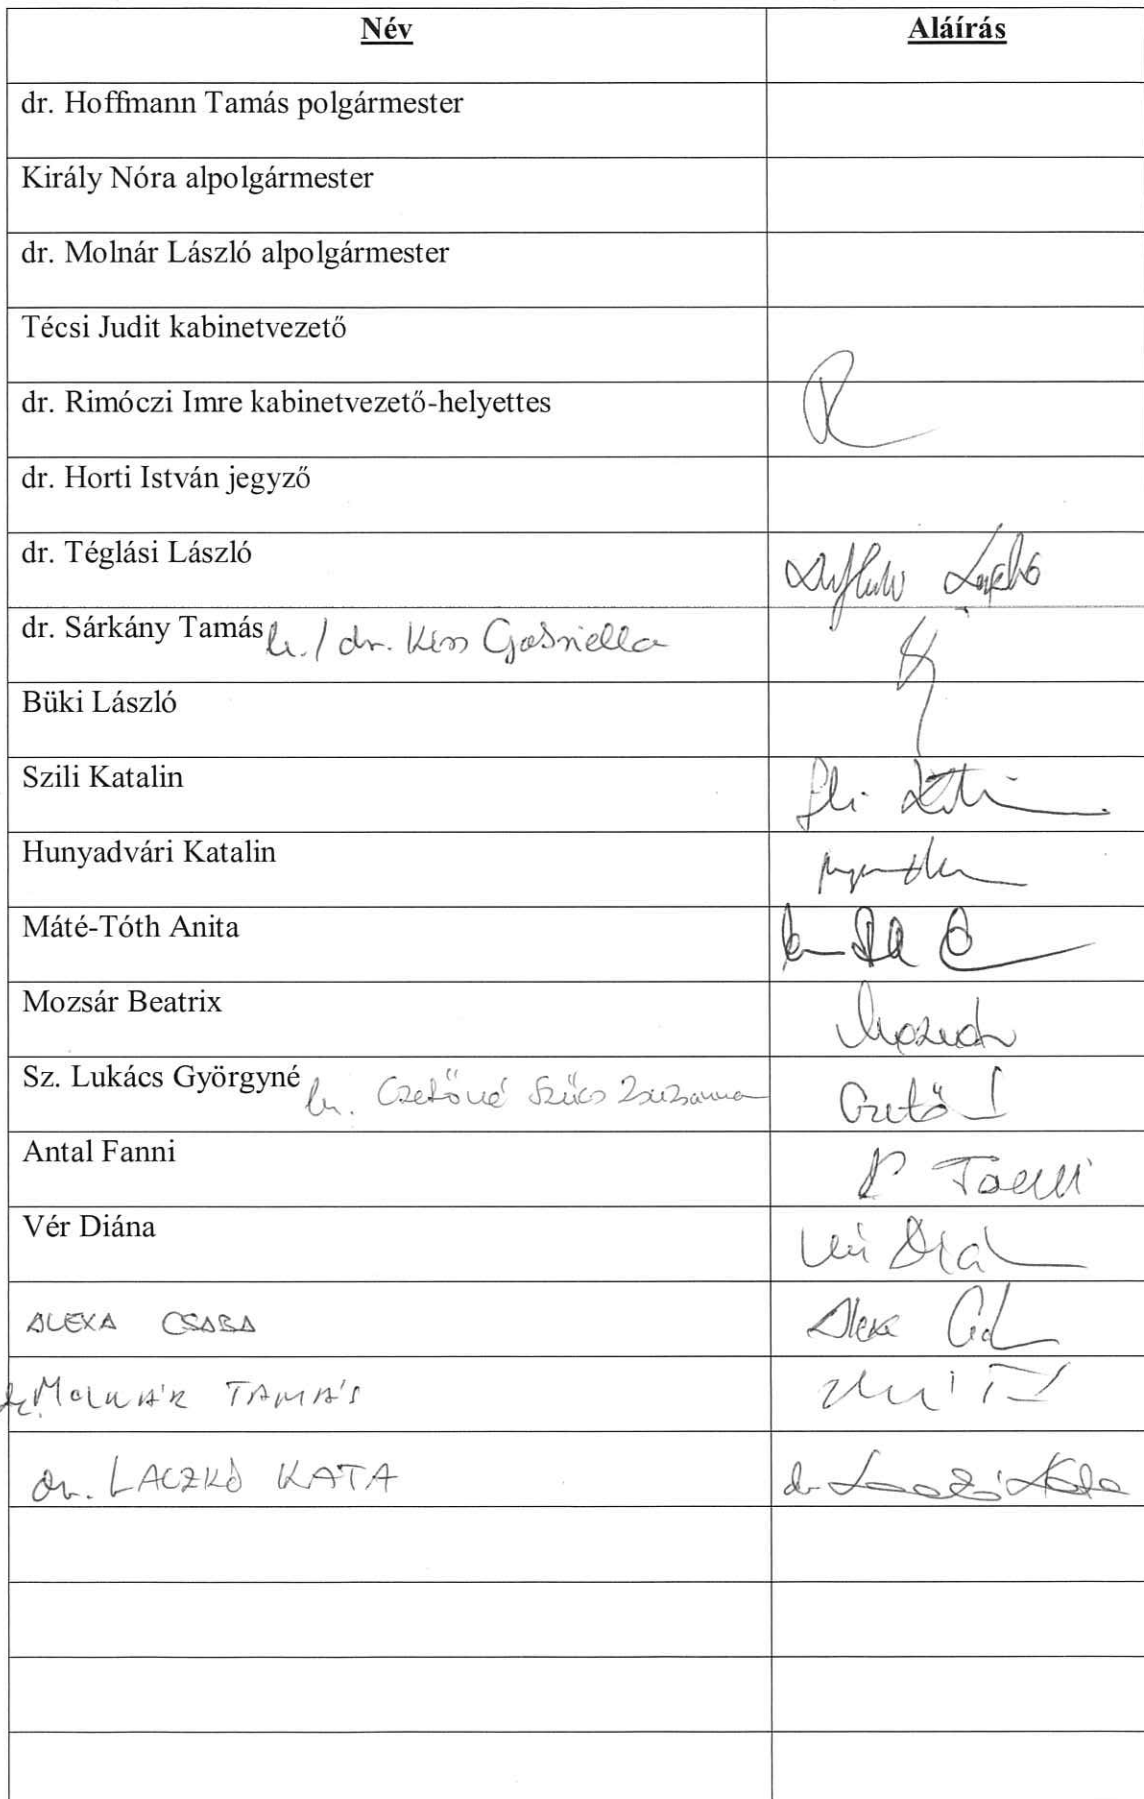 Név Aláírás
dr. Hoffmann Tamás polgármester
Király Nóra alpolgármester
dr. Molnár László alpolgármester
Técsi Judit kabinetvezető
dr. Rimóczi Imre kabinetvezető-helyettes R
dr. Horti István jegyző
dr. Téglási László László
dr. Sárkány Tamás h./ dr. Kiss Gabriella
Büki László
Szili Katalin
Hunyadvári Katalin
Máté-Tóth Anita
Mozsár Beatrix
Sz. Lukács Györgyné h. Czetőné Szűcs Zsuzsanna Czető
Antal Fanni Fanni
Vér Diána Vér
ALEXA CSABA Alexa
dr. MOLNÁR TAMÁS
dr. LACZKÓ KATA dr Laczkó Kata